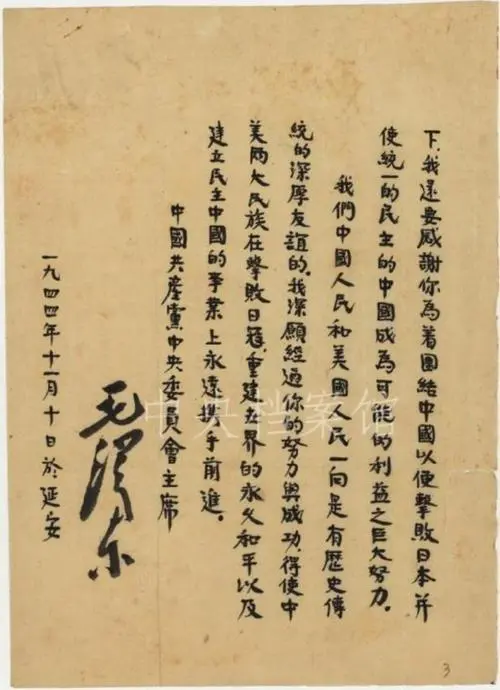 下。我還要感謝你為着團結中國以便擊敗日本并
使統一的民主的中國成為可能的利益之巨大努力。
我們中國人民和美國人民一向是有歷史傳
統的深厚友誼的。我深願經過你的努力與成功,得使中
美兩大民族在擊敗日寇,重建世界的永久和平以及
建立民主中國的事業上永遠攜手前進。
中國共產黨中央委員會主席
毛澤东
一九四四年十一月十日於延安
3
中央档案馆